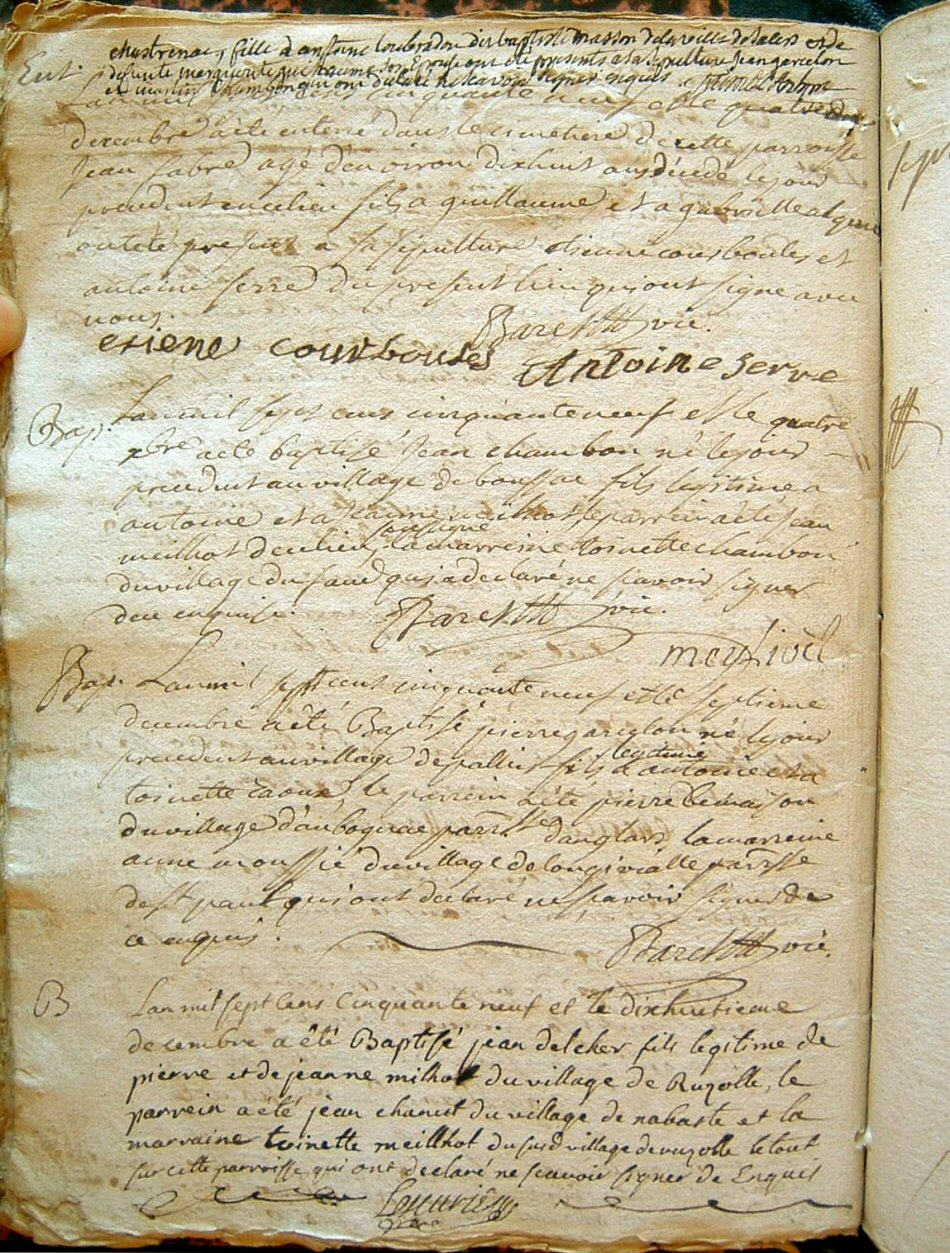 fille a antoine loubradou dit baptiste masson de la ville de et de
defunte marguerite son epouse ont été presents a la sepulture jean
et martin qui ont declaré ne scavoir signer enquis
Ent. Lan mil sept cens cinquante neuf et le quatre
decembre a été enterré dans le cimetiere de cette parroisse
Jean fabre agé d'environ dixhuit ans décédé le jour
precedent en ce lieu fils a guillaume et a gabrielle
ont été presens a sa sepulture etienne courboules et
antoine serre du present lieu qui ont signe avec
nous.
vic.
etiene courboules Antoine serre
Bap. Lan mil sept cens cinquante neuf et le quatre
xbre a été baptisé Jean chambon né le jour
precedent au village de boussac fils legitime a
antoine et a jeanne meilhot, le parrein a été jean
meilhot du lieu soussigné la marreine toinette chambon
du village du qui a declaré ne scavoir signer
de ce enquise.
vic.
Bap. Lan mil sept cent cinquante neuf et le septieme
decembre a été Baptisé pierre né le jour
precedent au village de fils legitime a antoine et a
toinette le parrein a été pierre
du village parrsse danglars, la marreine
anne moussié du village de longevialle parrsse
de st paul qui ont declaré ne scavoir signer de
ce enquis.
vic.
B Lan mil sept cens cinquante neuf et le dixhuitieme
decembre a êté Baptisé jean delcher fils legitime de
pierre et de jeanne milhot du village de Ruzolle, le
parrein a été jean du village de nabaste et la
marraine toinette meillhot du susd village de ruzolle le tout
sur cette parroisse, qui ont declaré ne scavoir signer de Enquis